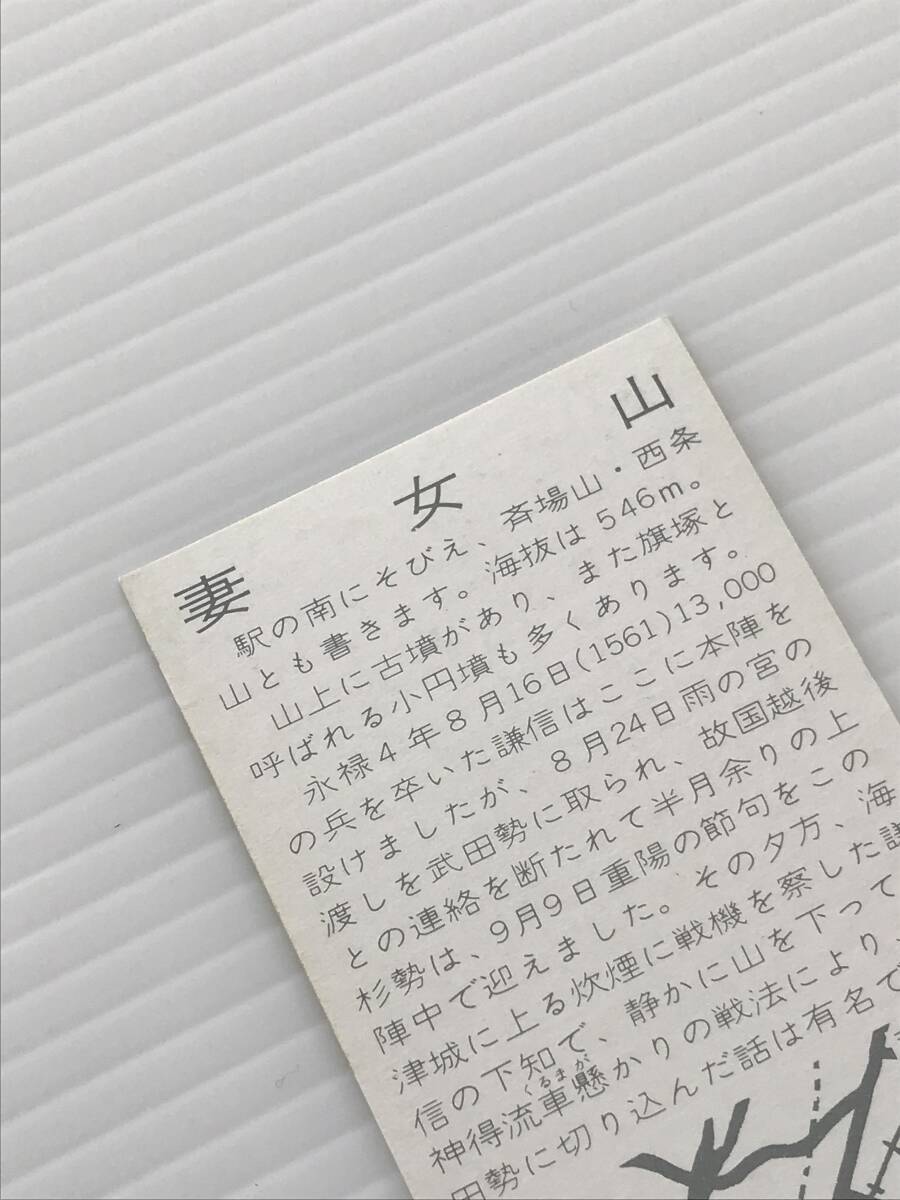 妻女山
駅の南にそびえ、斉場山・西条
山とも書きます。海抜は546m。
山上に古墳があり、また旗塚と
呼ばれる小円墳も多くあります。
永禄4年8月16日(1561)13,000
の兵を卒いた謙信はここに本陣を
設けましたが、8月24日雨の宮の
渡しを武田勢に取られ、故国越後
との連絡を断たれて半月余りの上
杉勢は、9月9日重陽の節句をこの
陣中で迎えました。その夕方、海
津城に上る炊煙に戦機を察した謙
信の下知で、静かに山を下って
くるまが
神得流車懸かりの戦法により、
田勢に切り込んだ話は有名で